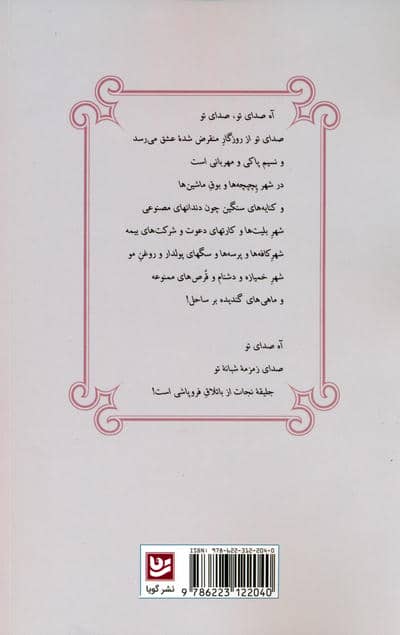 آه صدای تو، صدای تو
صدای تو از روزگارِ منقرض شدهٔ عشق می‌رسد
و نسیمِ پاکی و مهربانی است
در شهرِ پچپچه‌ها و بوقِ ماشین‌ها
و کنایه‌های سنگین چون دندانهای مصنوعی
شهرِ بلیت‌ها و کارتهای دعوت و شرکت‌های بیمه
شهرِ کافه‌ها و پرسه‌ها و سگهای پولدار و روغنِ مو
شهرِ خمیازه و دشنام و قُرص‌های ممنوعه
و ماهی‌های گندیده بر ساحل!
آه صدای تو
صدای زمزمهٔ شبانهٔ تو
جلیقهٔ نجات از باتلاقِ فروپاشی است!
ISBN: 978-622-312-204-0
9 786223 122040
نشر گویا